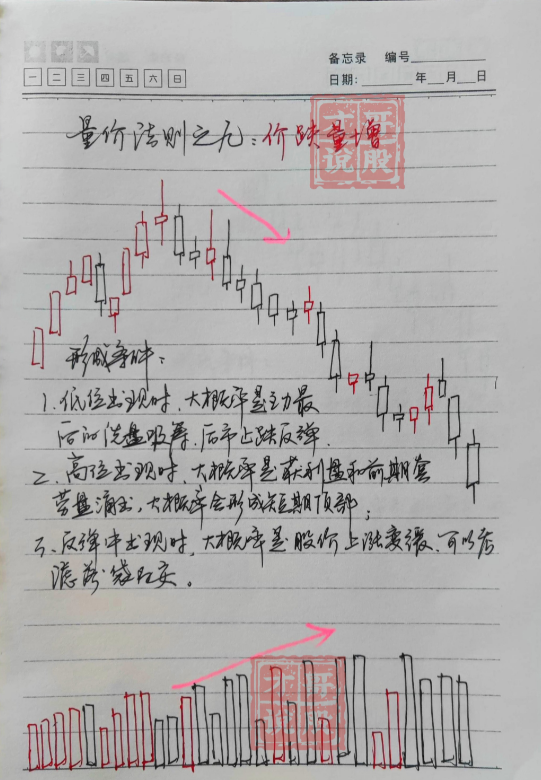 备忘录 编号
一 二 三 四 五 六 日
日期: 年 月 日
量价法则之九:价跌量增
才 旺
说 股
形成条件:
1、低位出现时,大概率是主力最
后的洗盘吸筹,后市止跌反弹.
2、高位出现时,大概率是获利盘和前期套
牢盘涌出,大概率会形成短期顶部;
3、反弹中出现时,大概率是股价上涨变缓,可以考
虑落袋为安。